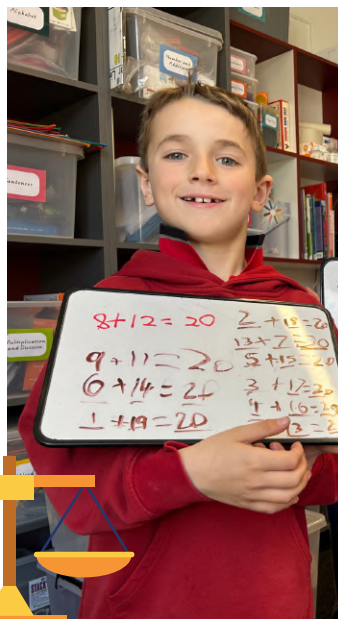 Alphabet
Number and
Addition
Multiplication
and Division
8+12=20
9+11=20
6+14=20
1+19=20
2+18=20
13+7=20
5+15=20
3+17=20
4+16=20
STACK